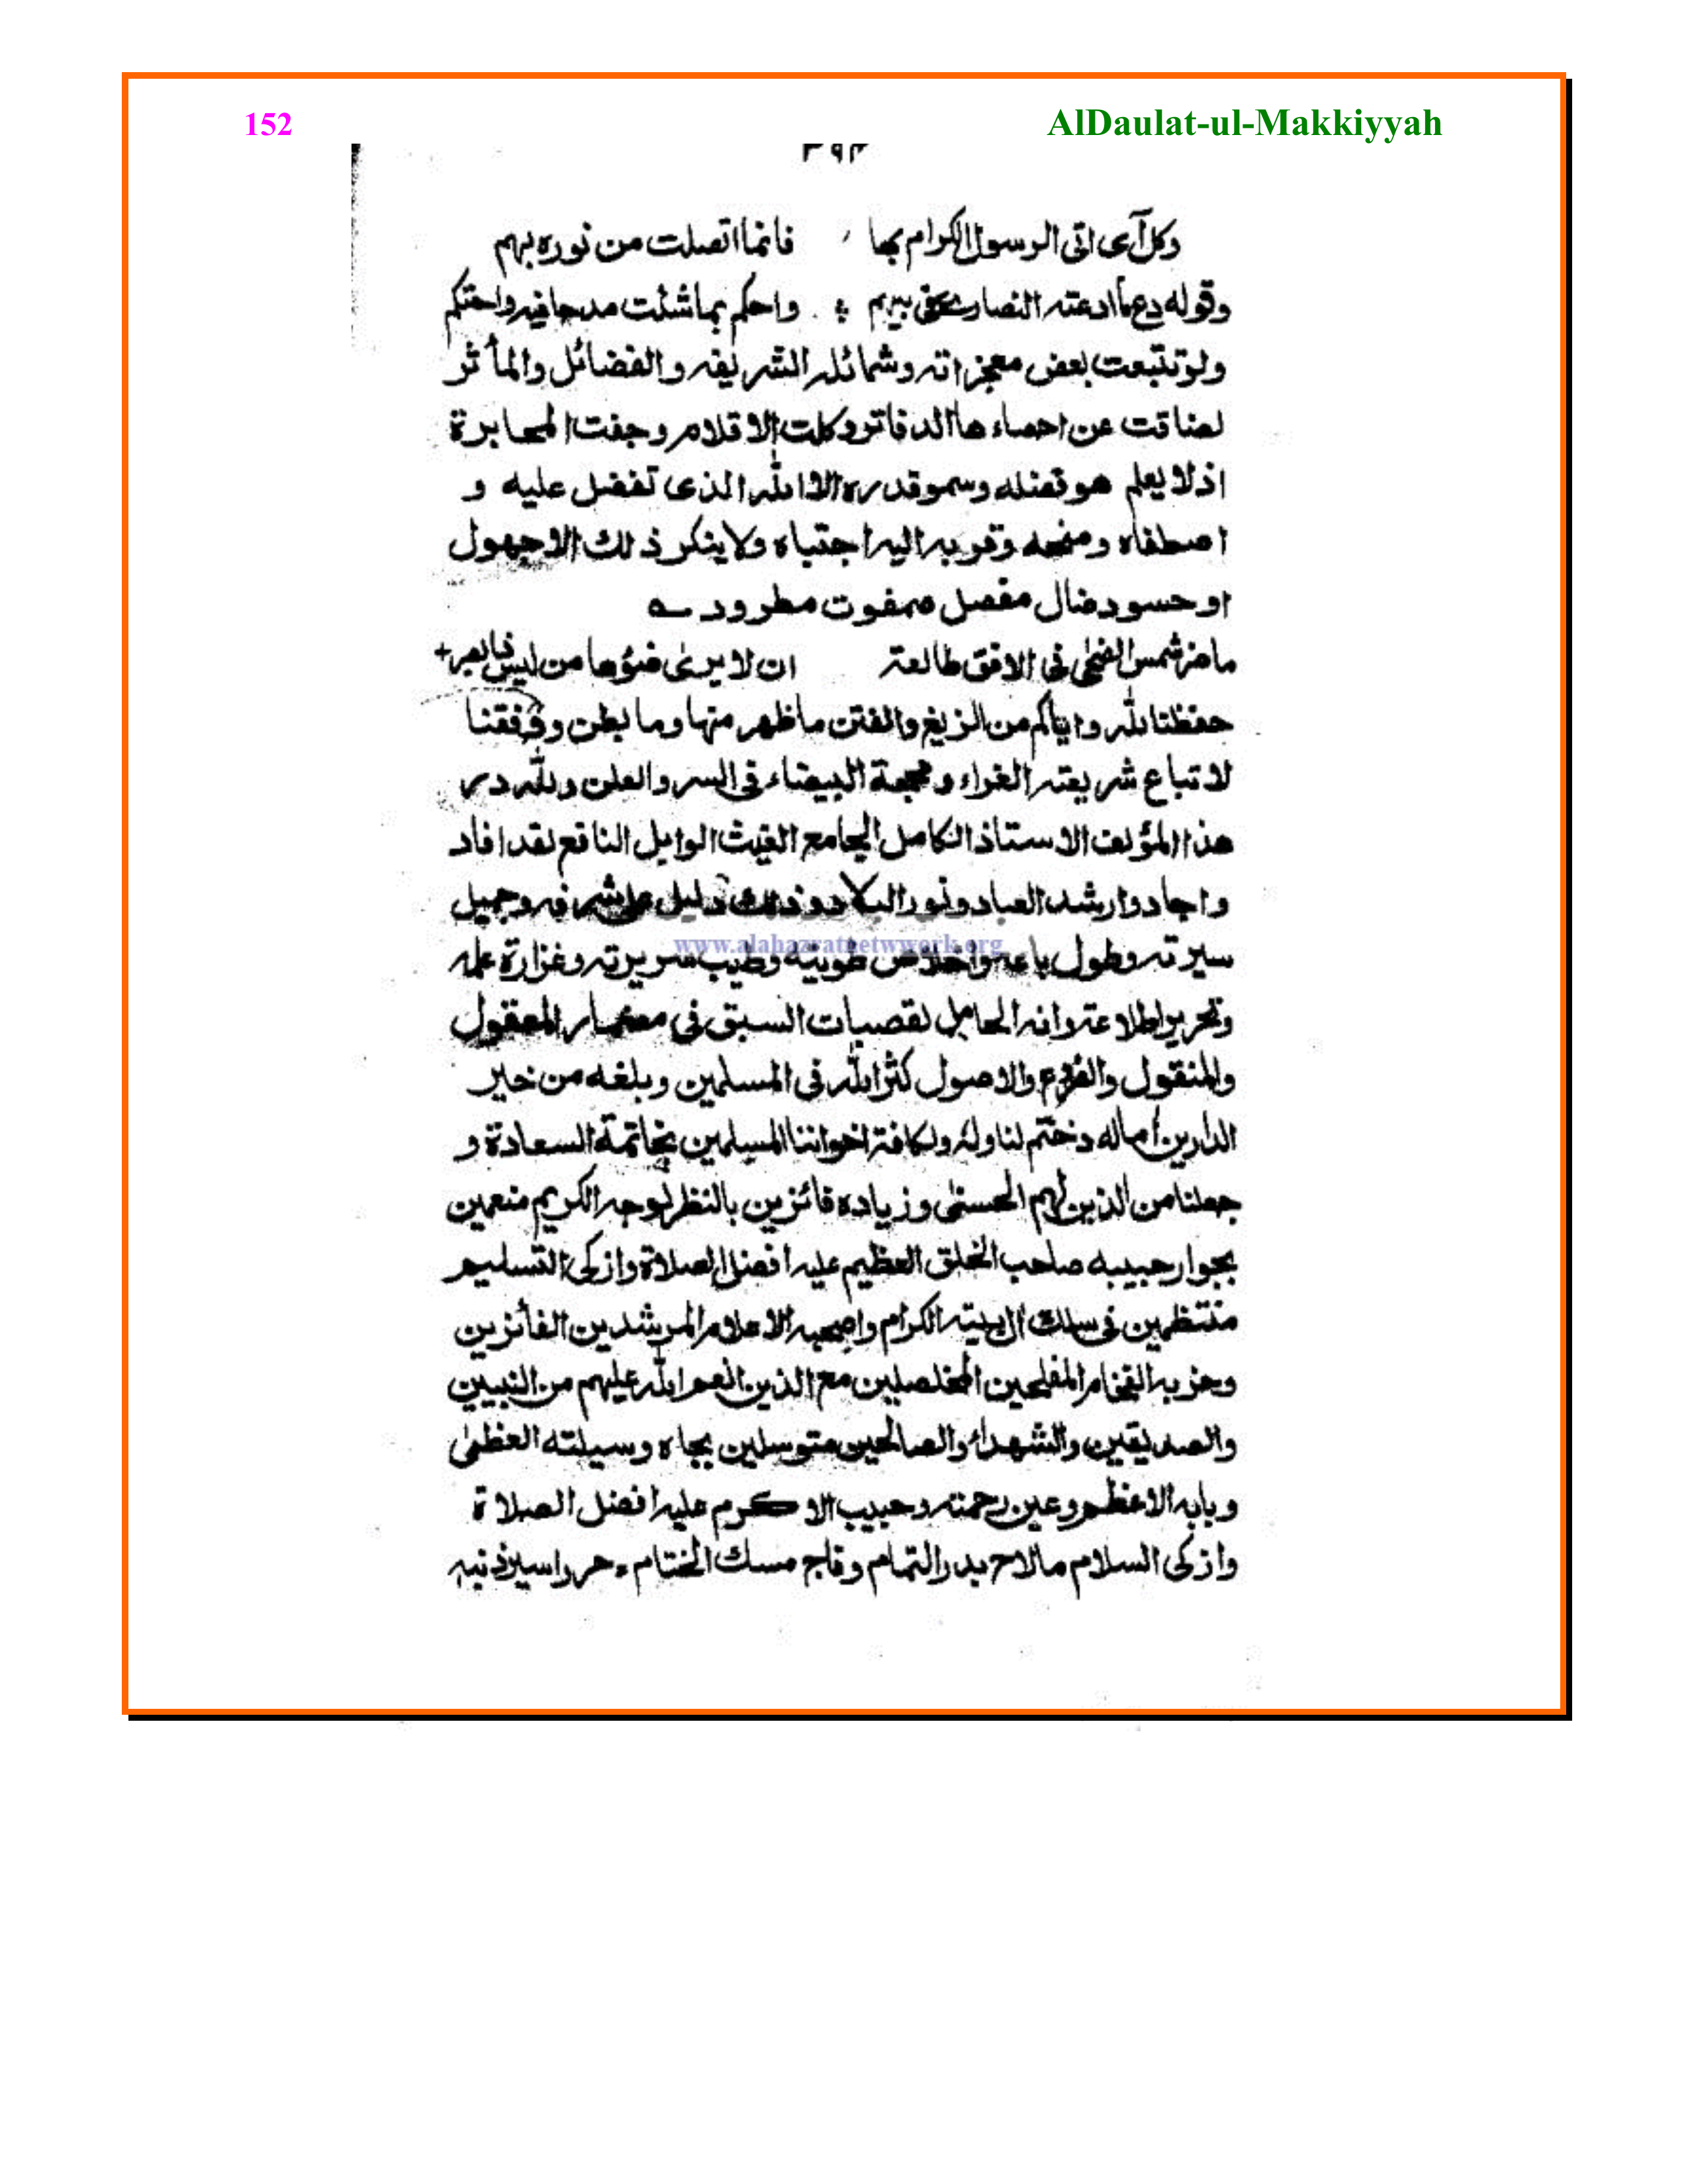 152 AlDaulat-ul-Makkiyyah
٣٩٣
وكل آى اتى الرسول الكرام بها فانما اتصلت من نوره بهم
وقوله دع ما ادعته النصارى فى واحكم بما شئت مدحا فيه واحتكم
ولو تتبعت بعض معجزاته وشمائله الشريفه والفضائل والمأثر
لضاقت عن احصاء ها الدفاتر وكلت الاقلام وجفت المحابرة
اذ لا يعلم هو تفضله وسمو قدره الا الله الذى تفضل عليه و
اصطفاه ومنحه وقربه اليه اجتباه ولا ينكر ذلك الا جهول
او حسود ضال مفصل ممقوت مطرود
ما ضر شمس الضحى فى الافق طالعة ان لا يرى ضوؤها من ليس ذا بصر
حفظنا الله واياكم من الزيغ والفتن ما ظهر منها وما بطن ووفقنا
لاتباع شريعته الغراء و البيضاء فى السر والعلن ولله در
هذا المؤلف الاستاذ الكامل الجامع الغيث الوابل النافع لقد افاد
واجاد وارشد العباد ونور البلاد وذلك دليل على شرفه وجميل
سيرته وطول باعه واخلاص طويته وطيب سريرته وغزارة علمه
وتحرير اطلاعته وانه الحامل لقصبات السبق فى مضمار المعقول
والمنقول والفروع والاصول كثر الله فى المسلمين وبلغه من خير
الدارين أماله وختم لنا وله ولكافة اخواننا المسلمين بخاتمة السعادة و
جعلنا من الذين لهم الحسنى وزياده فائزين بالنظر لوجه الكريم منعمين
بجوار حبيبه صاحب الخلق العظيم عليه افضل الصلاة وازكى التسليم
منتظمين فى سلك ال بيته الكرام واصحبه الاعلام المرشدين الفأئزين
وحزبه الفخام المفلحين المخلصلين مع الذين انعم الله عليهم من النبيين
والصديقين والشهداء والصالحين متوسلين بجاه وسيلته العظمى
وبابه الاعظم وعين رحمته وحبيب الاكرم عليه افضل الصلاة
وازكى السلام ما لاح بدر التمام وفاح مسك الختام حرر اسير ذنبه
www.alahazratnetwork.org